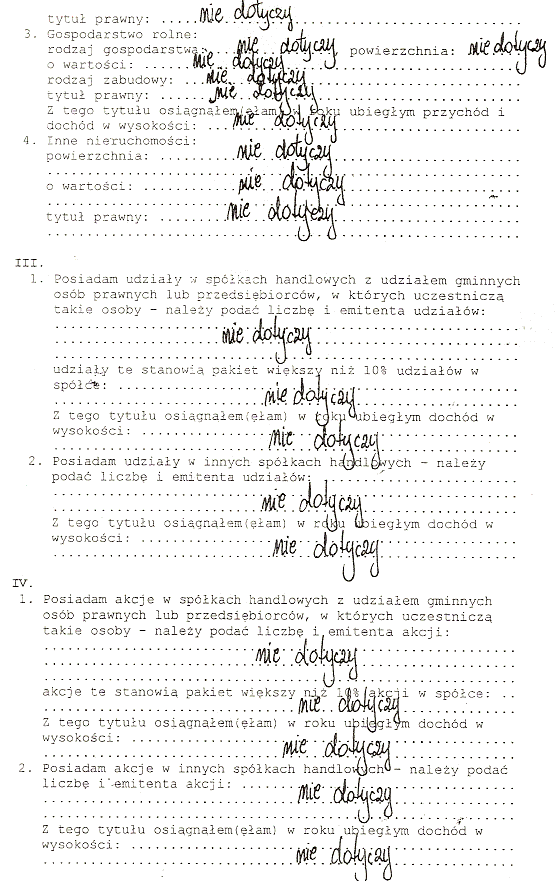 tytuł prawny: .....nie dotyczy
3. Gospodarstwo rolne:
rodzaj gospodarstwa: nie dotyczy powierzchnia: nie dotyczy
o wartości: nie dotyczy
rodzaj zabudowy: nie dotyczy
tytuł prawny: nie dotyczy
Z tego tytułu osiągnąłem(ęłam) w roku ubiegłym przychód i
dochód w wysokości: nie dotyczy
4. Inne nieruchomości:
powierzchnia: nie dotyczy
o wartości: nie dotyczy
tytuł prawny: nie dotyczy
III.
1. Posiadam udziały w spółkach handlowych z udziałem gminnych
osób prawnych lub przedsiębiorców, w których uczestniczą
takie osoby - należy podać liczbę i emitenta udziałów:
nie dotyczy
udziały te stanowią pakiet większy niż 10% udziałów w
spółce: nie dotyczy
Z tego tytułu osiągnąłem(ęłam) w roku ubiegłym dochód w
wysokości: nie dotyczy
2. Posiadam udziały w innych spółkach handlowych - należy
podać liczbę i emitenta udziałów:
nie dotyczy
Z tego tytułu osiągnąłem(ęłam) w roku ubiegłym dochód w
wysokości: nie dotyczy
IV.
1. Posiadam akcje w spółkach handlowych z udziałem gminnych
osób prawnych lub przedsiębiorców, w których uczestniczą
takie osoby - należy podać liczbę i emitenta akcji:
nie dotyczy
akcje te stanowią pakiet większy niż 10% akcji w spółce: ..
nie dotyczy
Z tego tytułu osiągnąłem(ęłam) w roku ubiegłym dochód w
wysokości: nie dotyczy
2. Posiadam akcje w innych spółkach handlowych - należy podać
liczbę i emitenta akcji:
nie dotyczy
Z tego tytułu osiągnąłem(ęłam) w roku ubiegłym dochód w
wysokości: nie dotyczy